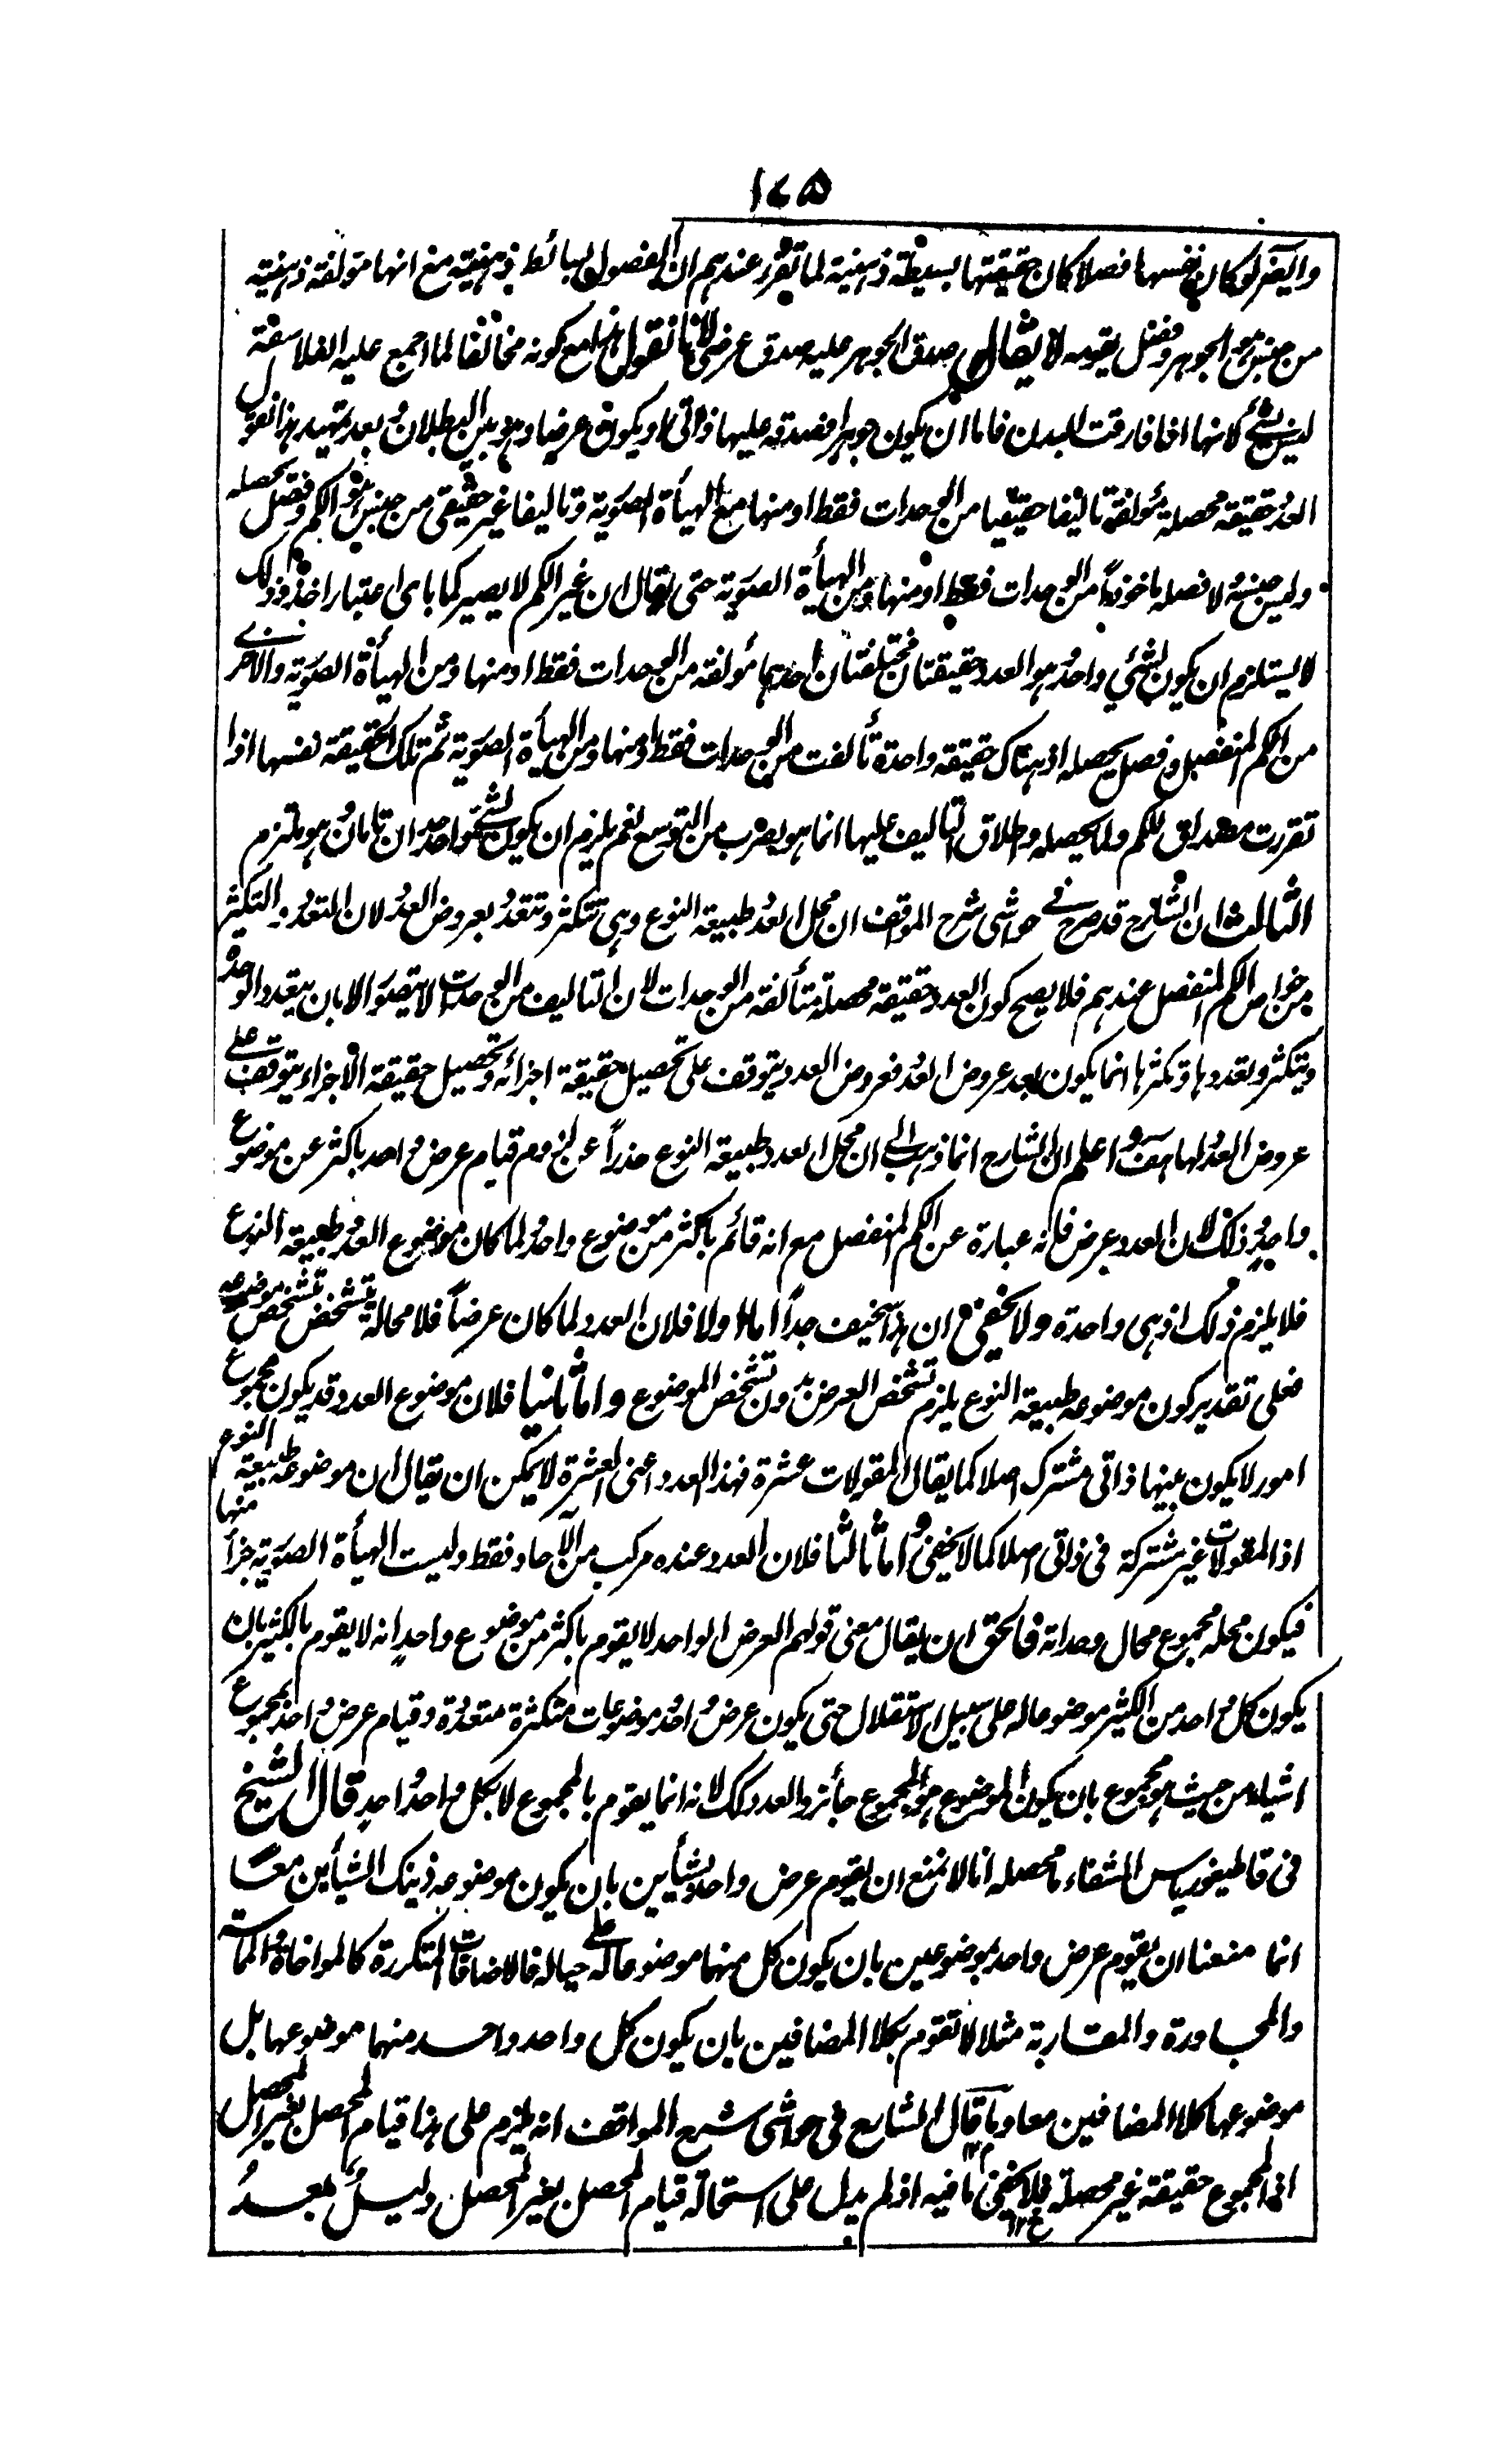 ١٧٥
وايضا لو كان نفسها فصلا كان حقيقتها بسيطة ذهنية لما تقرر عندهم ان الفصول بسائط ذهنية مع انها مؤلفة ذهنية
من جنس هو الجوهر وفصل يقومه لا يقال صدق الجوهر عليه صدق عرضى لانا نقول هذا مع كونه مخالفا لما اجمع عليه الفلاسفة
ليس بشئ لانها اذا فارقت البدن فاما ان يكون جوهرا فصدقه عليها ذاتى او يكون عرضا وهو بين البطلان بعد تمهيد هذا نقول
العدد حقيقة محصلة مؤلفة تاليفا حقيقيا من الوحدات فقط او منها مع الهيأة الصورية وتاليفا غير حقيقى من جنس هو الكم وفصل يحصله
وليس جنسه لا فصله ماخوذا من الوحدات فقط او منها ومن الهيأة الصورية حتى يقال ان غير الكم لا يصير كما باى اعتبار اخذ وذلك
لا يستلزم ان يكون لشئ واحد هو العدد حقيقتان مختلفتان احدهما مؤلفة من الوحدات فقط او منها ومن الهيأة الصورية والاخرى
من الكم المنفصل وفصل يحصله اذ هناك حقيقة واحدة تألفت من الوحدات فقط او منها ومن الهيأة الصورية ثم تلك الحقيقة نفسها اذا
تقررت مصداق للكم ولما يحصله واطلاق التاليف عليها انما هو بضرب من التوسع نعم يلزم ان يكون لشئ واحد حدان تامان وهو ملتزم
الثالث ان الشارح قد صرح فى حواشى شرح المواقف ان محل العدد طبيعة النوع وهى تتكثر وتتعدد بعروض العدد لان التعدد والتكثر
من خواص الكم المنفصل عندهم فلا يصح كون العدد حقيقة محصلة متألفة من الوحدات لان التاليف من الوحدات لا يتصور الا بان يتعدد الوحدة
ويتكثر وتعددها وتكثرها انما يكون بعد عروض العدد فعروض العدد يتوقف على تحصيل حقيقة اجزائه وتحصيل حقيقة الاجزاء يتوقف على
عروض العدد لها هف واعلم ان الشارح انما ذهب الى ان محل العدد طبيعة النوع حذرا عن لزوم قيام عرض واحد باكثر عن موضوع
واحد وذلك لان العدد عرض فانه عبارة عن الكم المنفصل مع انه قائم باكثر من موضوع واحد ولما كان موضوع العدد طبيعة النوع
فلا يلزم ذلك اذ هى واحدة ولا يخفى ان هذا سخيف جدا اما اولا فلان العدد لما كان عرضا فلا محالة يتشخص بتشخص موضوعه
فعلى تقدير كون موضوعه طبيعة النوع يلزم تشخص العرض بدون تشخص الموضوع واما ثانيا فلان موضوع العدد قد يكون مجموع
امور لا يكون بينها ذاتى مشترك اصلا كما يقال المقولات عشرة فهذا العدد اعنى العشرة لا يمكن ان يقال ان موضوعه طبيعة النوع
اذ المقولات غير مشتركة فى ذاتى اصلا كما لا يخفى واما ثالثا فلان العدد عنده مركب من الآحاد فقط وليست الهيأة الصورية جزأ منها
فيكون محله مجموع محال وحداته فالحق ان يقال معنى قولهم العرض الواحد لا يقوم باكثر من موضوع واحد انه لا يقوم بالكثير بان
يكون كل واحد من الكثير موضوعا له على سبيل الاستقلال حتى يكون عرض واحد موضوعات متكثرة متعددة وقيام عرض واحد بمجموع
اشياء من حيث هو مجموع بان يكون الموضوع هو المجموع جائز والعدد كك لانه انما يقوم بالمجموع لا بكل واحد واحد قال الشيخ
فى قاطيغورياس الشفاء ما محصله انا لا نمنع ان يقوم عرض واحد بشيأين بان يكون موضوعه ذينك الشيأين معا
انما منعنا ان يقوم عرض واحد بموضوعين بان يكون كل منهما موضوعا له على حياله فالاضافات المتكررة كالمواخاة والمماسة
والمجاورة والمقاربة مثلا لا تقوم بكلا المضافين بان يكون كل واحد واحد منهما موضوعها بل
موضوعها كلا المضافين معا وما قال الشارح فى حواشى شرح المواقف انه يلزم على هذا قيام المحصل بغير المحصل
اذ المجموع حقيقة غير محصلة فلا يخفى ما فيه اذ لم يدل على استحالة قيام المحصل بغير المحصل دليل بعد